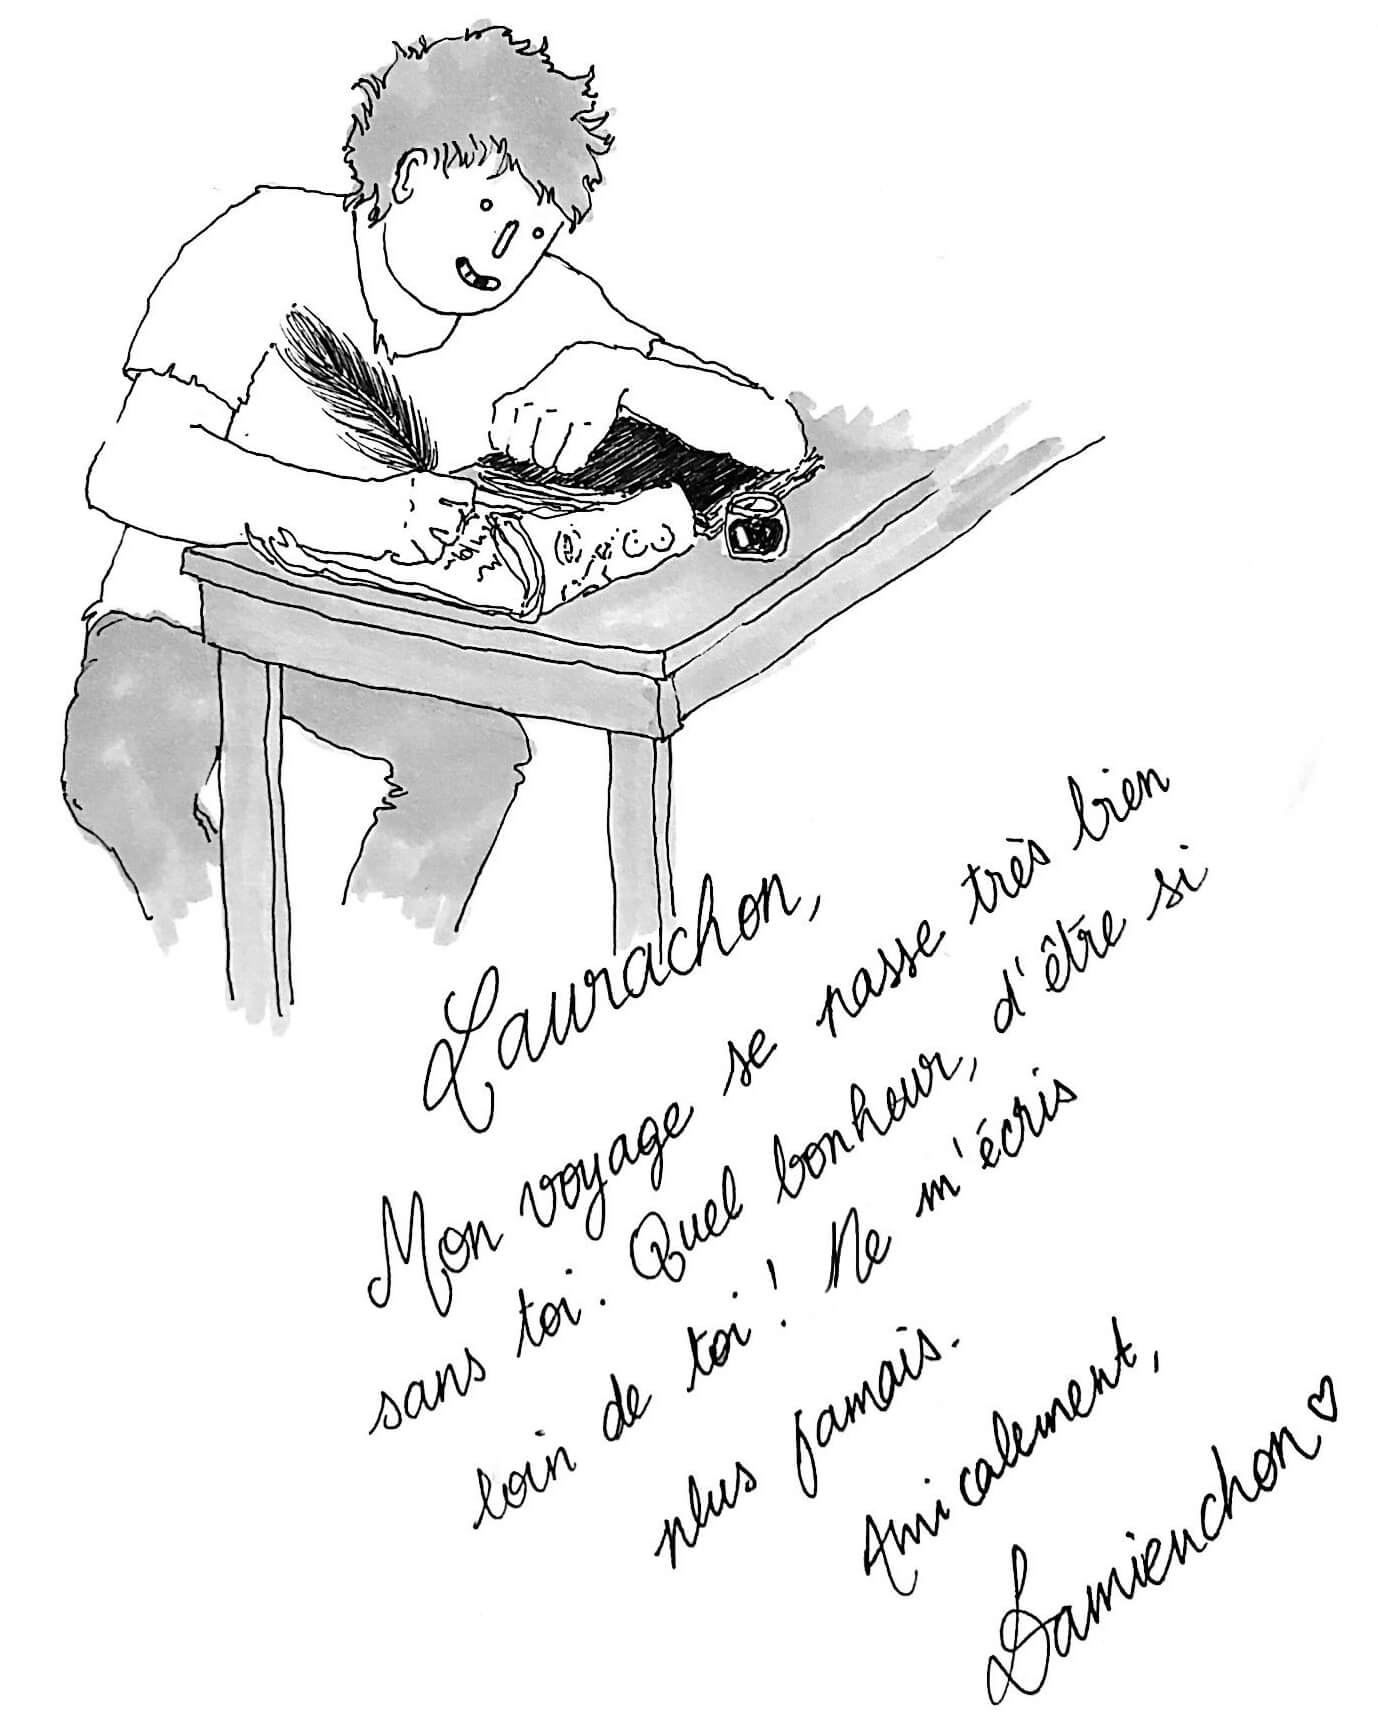 Laurachon,
Mon voyage se passe très bien
sans toi. Quel bonheur, d'être si
loin de toi ! Ne m'écris
plus jamais.
Amicalement,
Damienchon ♡